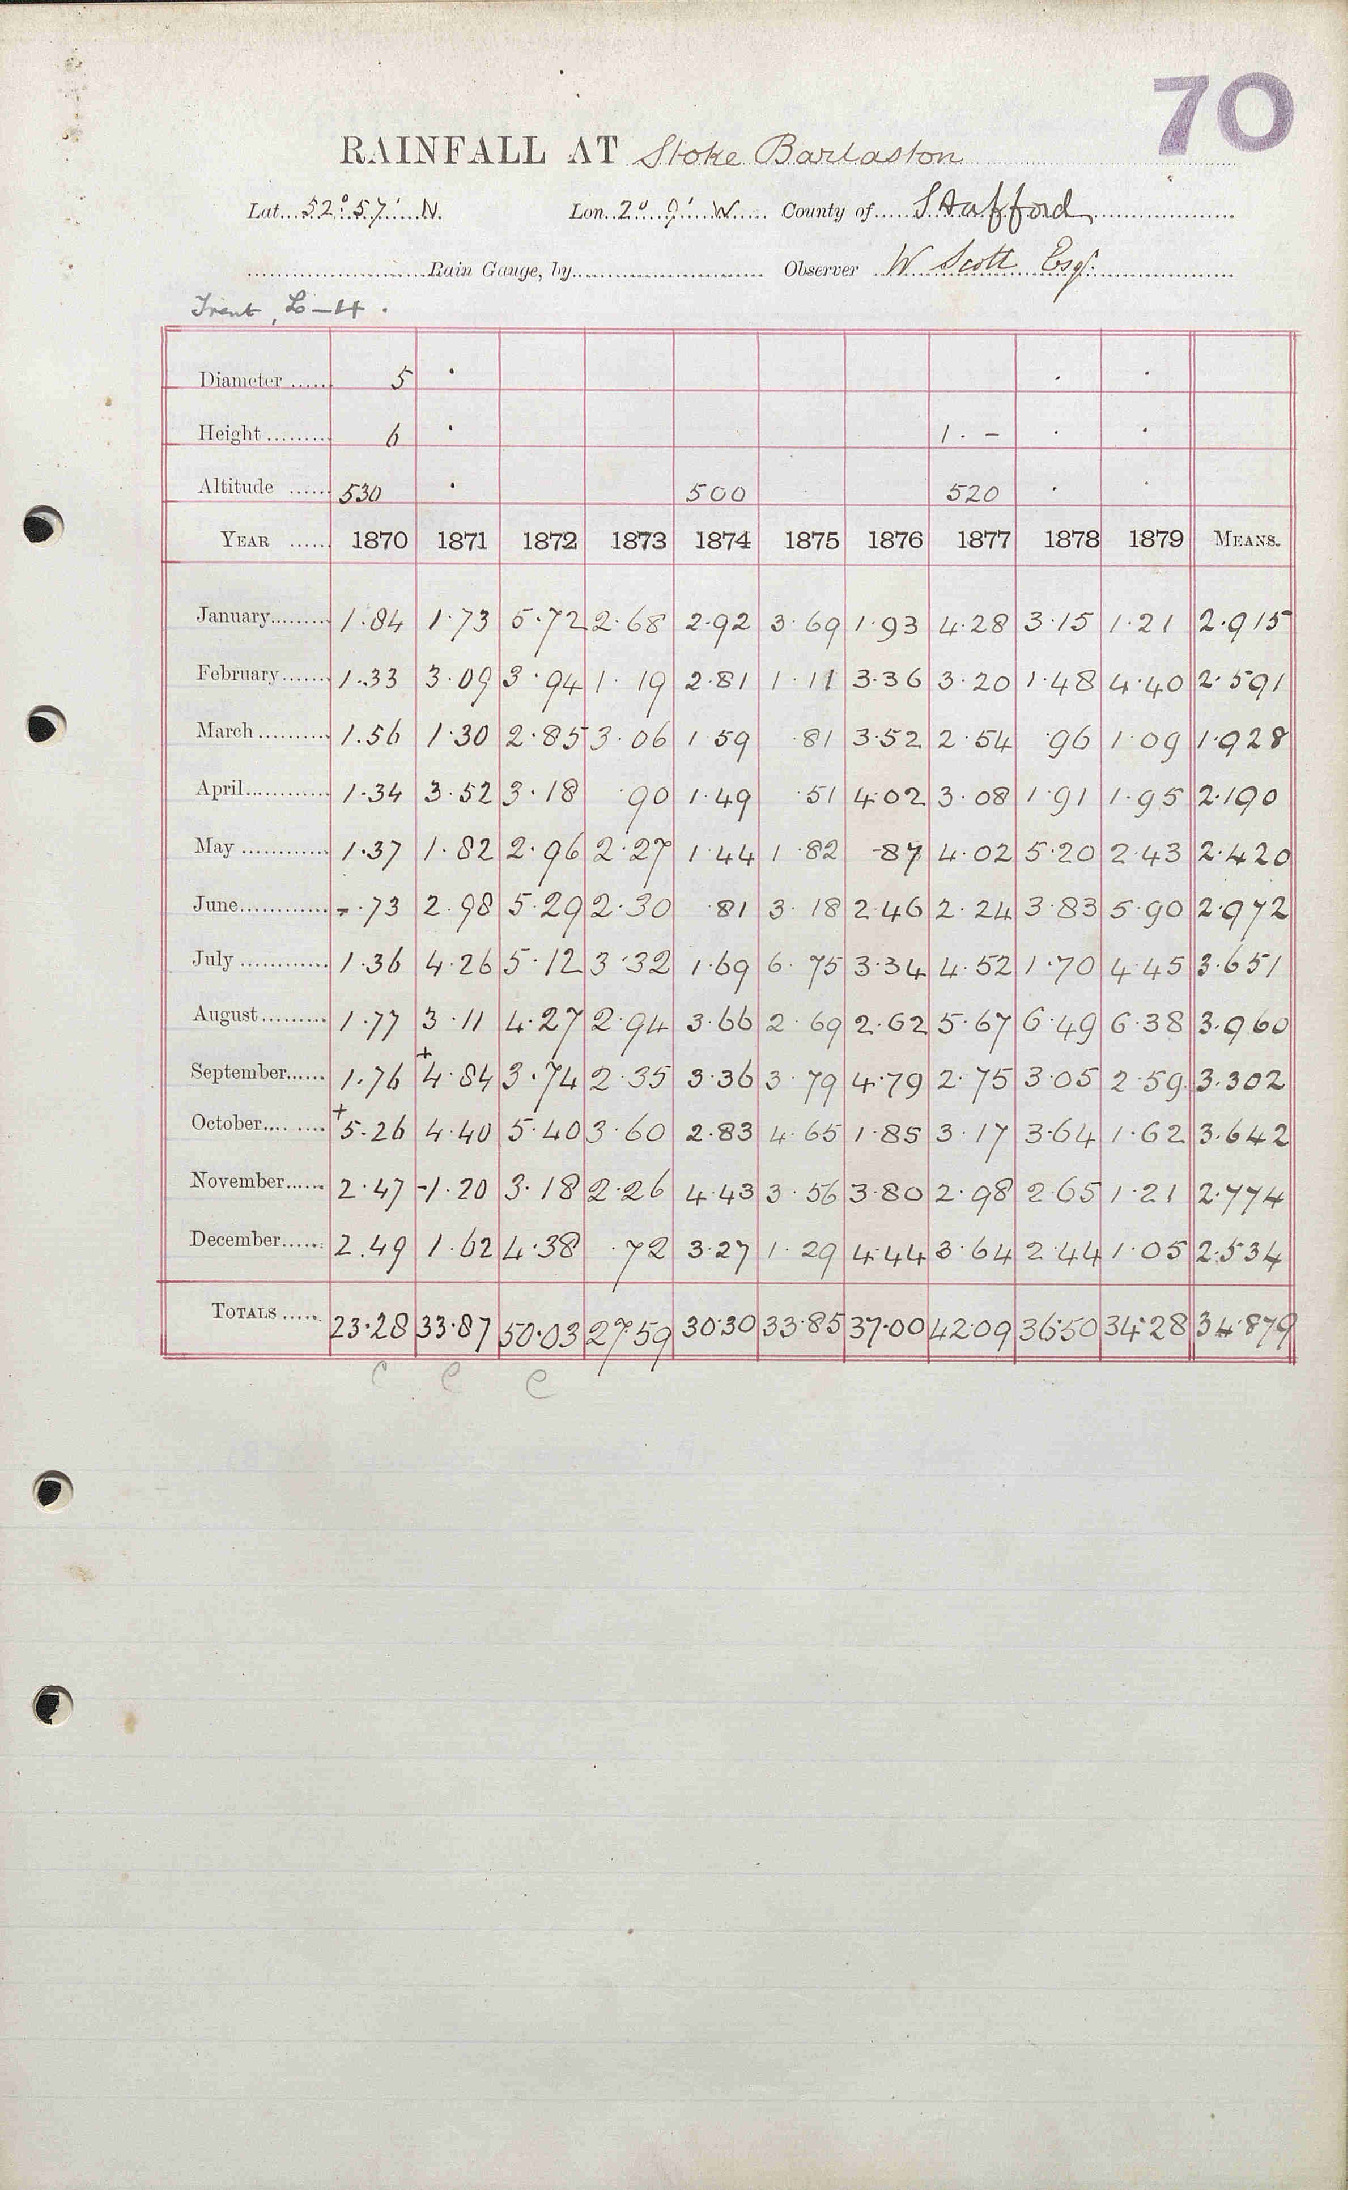 70
RAINFALL AT Stoke Barlaston
Lat. 52° 57' N. Lon. 2° 9' W. County of Stafford
Rain Gauge, by Observer W Scott Esqr.
Trent, L-H.
Diameter 5 · · ·
Height 6 · 1 · - · ·
Altitude 530 · 500 520 · ·
YEAR 1870 1871 1872 1873 1874 1875 1876 1877 1878 1879 MEANS.
January 1.84 1.73 5.72 2.68 2.92 3.69 1.93 4.28 3.15 1.21 2.915
February 1.33 3.09 3.94 1.19 2.81 1.11 3.36 3.20 1.48 4.40 2.591
March 1.56 1.30 2.85 3.06 1.59 .81 3.52 2.54 .96 1.09 1.928
April 1.34 3.52 3.18 .90 1.49 .51 4.02 3.08 1.91 1.95 2.190
May 1.37 1.82 2.96 2.27 1.44 1.82 .87 4.02 5.20 2.43 2.420
June -.73 2.98 5.29 2.30 .81 3.18 2.46 2.24 3.83 5.90 2.972
July 1.36 4.26 5.12 3.32 1.69 6.75 3.34 4.52 1.70 4.45 3.651
August 1.77 3.11 4.27 2.94 3.66 2.69 2.62 5.67 6.49 6.38 3.960
September 1.76 +4.84 3.74 2.35 3.36 3.79 4.79 2.75 3.05 2.59 3.302
October +5.26 4.40 5.40 3.60 2.83 4.65 1.85 3.17 3.64 1.62 3.642
November 2.47 -1.20 3.18 2.26 4.43 3.56 3.80 2.98 2.65 1.21 2.774
December 2.49 1.62 4.38 .72 3.27 1.29 4.44 3.64 2.44 1.05 2.534
TOTALS 23.28 33.87 50.03 27.59 30.30 33.85 37.00 42.09 36.50 34.28 34.879
C C C